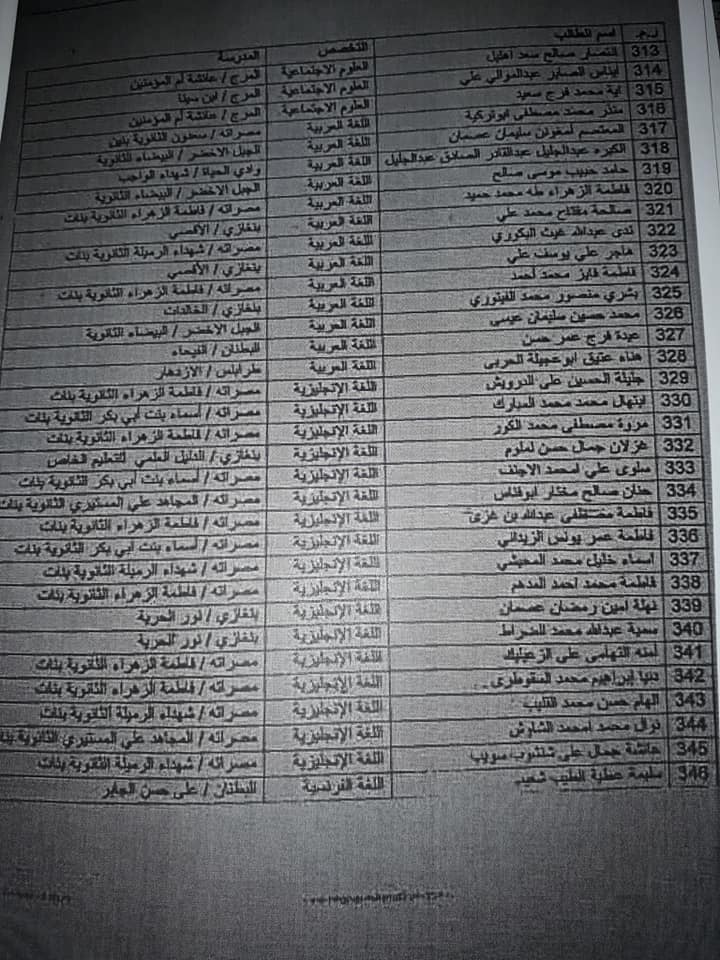 ر.م. اسم الطالب التخصص المدرسة
313 انتصار صالح سعد اهليل العلوم الاجتماعية المرج / عائشة أم المؤمنين
314 ايناس الصابر عبدالموالي علي العلوم الاجتماعية المرج / ابن سينا
315 اية محمد فرج سعيد العلوم الاجتماعية المرج / عائشة أم المؤمنين
316 منذر محمد مصطفى ابوتركية اللغة العربية مصراته / سعدون الثانوية بنين
317 المعتصم امغوني سليمان عصمان اللغة العربية الجبل الاخضر / البيضاء الثانوية
318 الكبره عبدالجليل عبدالقادر الصادق عبدالجليل اللغة العربية وادي الحياة / شهداء الواجب
319 حامد حبيب موسى صالح اللغة العربية الجبل الاخضر / البيضاء الثانوية
320 فاطمة الزهراء طه محمد حميد اللغة العربية مصراته / فاطمة الزهراء الثانوية بنات
321 صالحة مفتاح محمد علي اللغة العربية بنغازي / الأقصى
322 ندى عبدالله غيث البكوري اللغة العربية مصراته / شهداء الرميلة الثانوية بنات
323 هاجر علي يوسف علي اللغة العربية بنغازي / الأقصى
324 فاطمة فايز محمد احمد اللغة العربية مصراته / فاطمة الزهراء الثانوية بنات
325 بشرى منصور محمد الفيتوري اللغة العربية بنغازي / الخالدات
326 محمد حسين سليمان عيسى اللغة العربية الجبل الاخضر / البيضاء الثانوية
327 عيدة فرج عمر حسن اللغة العربية البطنان / الفيحاء
328 هناء عتيق ابوعجيلة العربي اللغة العربية طرابلس / الازدهار
329 جليلة الحسين علي الدرويش اللغة الإنجليزية مصراته / فاطمة الزهراء الثانوية بنات
330 ابتهال محمد محمد المبارك اللغة الإنجليزية مصراته / أسماء بنت أبي بكر الثانوية بنات
331 مروة مصطفى محمد الكور اللغة الإنجليزية مصراته / فاطمة الزهراء الثانوية بنات
332 غزلان جمال حسن لملوم اللغة الإنجليزية بنغازي / الدليل العلمي للتعليم الخاص
333 سلوى علي امحمد الاجنف اللغة الإنجليزية مصراته / أسماء بنت أبي بكر الثانوية بنات
334 حنان صالح مختار ابوفناس اللغة الإنجليزية مصراته / المجاهد علي المستيري الثانوية بنات
335 فاطمة مصطفى عبدالله بن غزي اللغة الإنجليزية مصراته / فاطمة الزهراء الثانوية بنات
336 فاطمة عمر يونس الزيداني اللغة الإنجليزية مصراته / أسماء بنت أبي بكر الثانوية بنات
337 اسماء خليل محمد المحيشي اللغة الإنجليزية مصراته / شهداء الرميلة الثانوية بنات
338 فاطمة محمد احمد المدهم اللغة الإنجليزية مصراته / فاطمة الزهراء الثانوية بنات
339 نهلة امين رمضان عصمان اللغة الإنجليزية بنغازي / نور الحرية
340 سمية عبدالله محمد الضراط اللغة الإنجليزية بنغازي / نور الحرية
341 امنه التهامي علي الزعيليك اللغة الإنجليزية مصراته / فاطمة الزهراء الثانوية بنات
342 دنيا ابراهيم محمد السقوطري اللغة الإنجليزية مصراته / فاطمة الزهراء الثانوية بنات
343 الهام حسن محمد القليب اللغة الإنجليزية مصراته / شهداء الرميلة الثانوية بنات
344 نزال محمد امحمد الشاوش اللغة الإنجليزية مصراته / المجاهد علي المستيري الثانوية بنات
345 عائشة جمال علي شنشوب سويب اللغة الإنجليزية مصراته / شهداء الرميلة الثانوية بنات
346 سليمة عطية الطيب شعيب اللغة الفرنسية البطنان / علي حسن الجابر